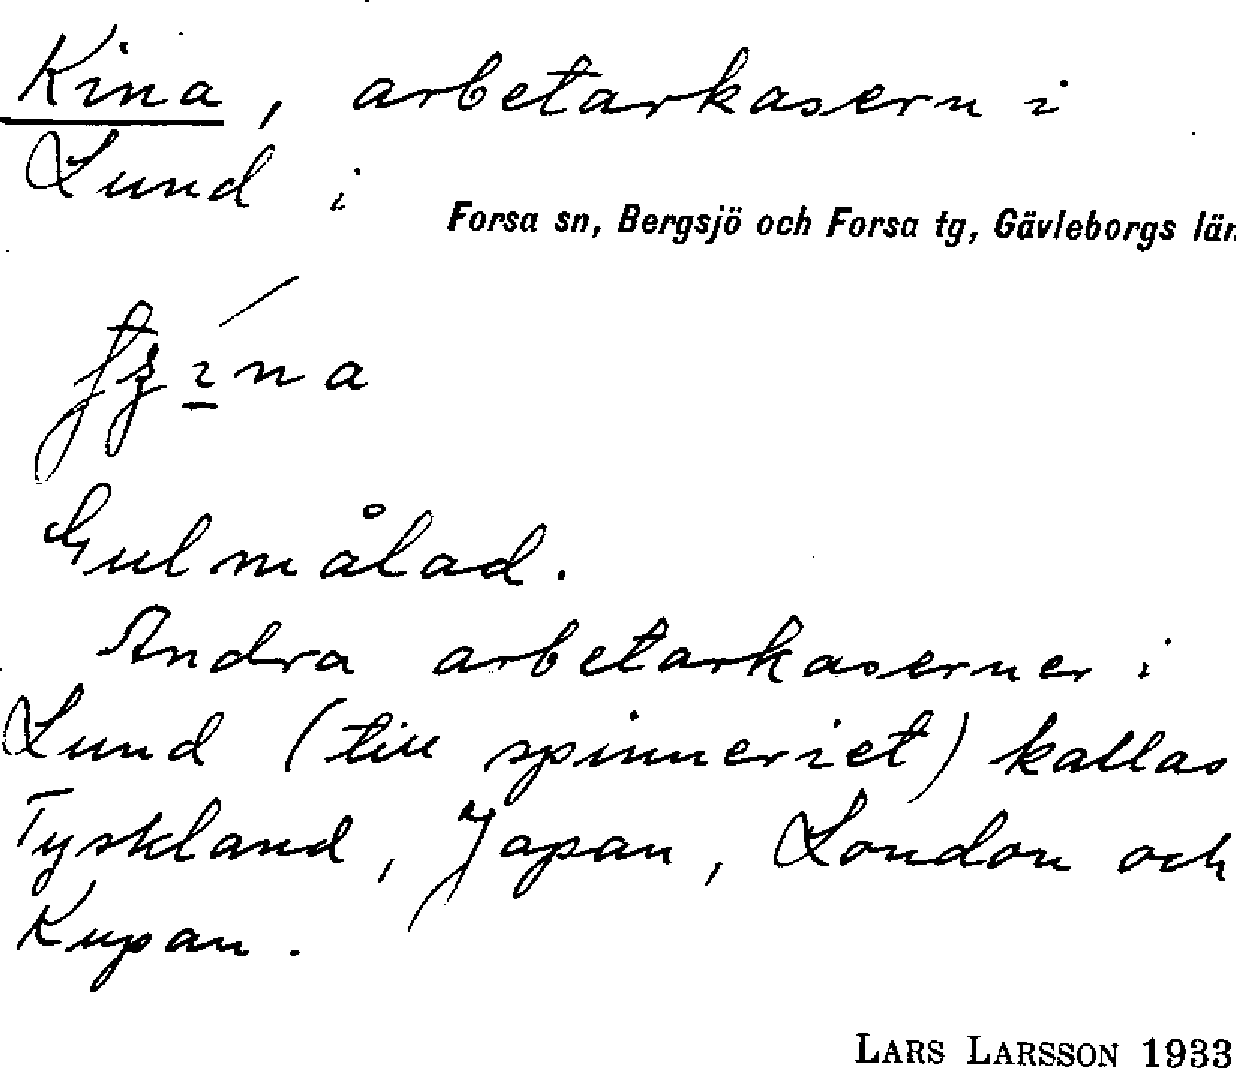 Kina, arbetarkasern i
Lund i
Forsa sn, Bergsjö och Forsa tg, Gävleborgs län
Gulmålad.
Andra arbetarkaserner i
Lund (till spinneriet) kallas
Tyskland, Japan, London och
Kupan.
LARS LARSSON 1933